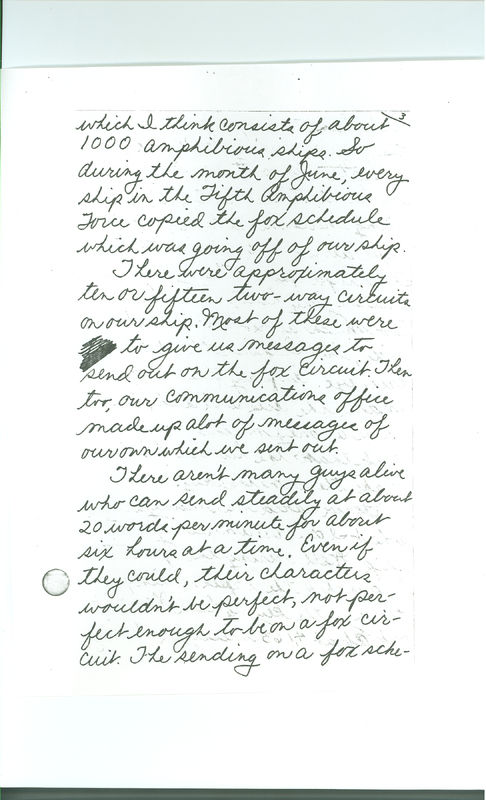 3
which I think consists of about
1000 amphibious ships. So
during the month of June, every
ship in the Fifth Amphibious
Force copied the fox schedule
which was going off of our ship.
There were approximately
ten or fifteen two-way circuits
on our ship. Most of these were
to give us messages to
send out on the fox circuit. Then
too, our communications office
made up alot of messages of
our own which we sent out.
There aren't many guys alive
who can send steadily at about
20 words per minute for about
six hours at a time. Even if
they could, their characters
wouldn't be perfect, not per-
fect enough to be on a fox cir-
cuit. The sending on a fox sche-